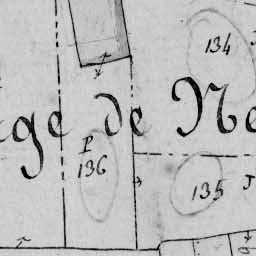 134
ge de Ne
P
136
135